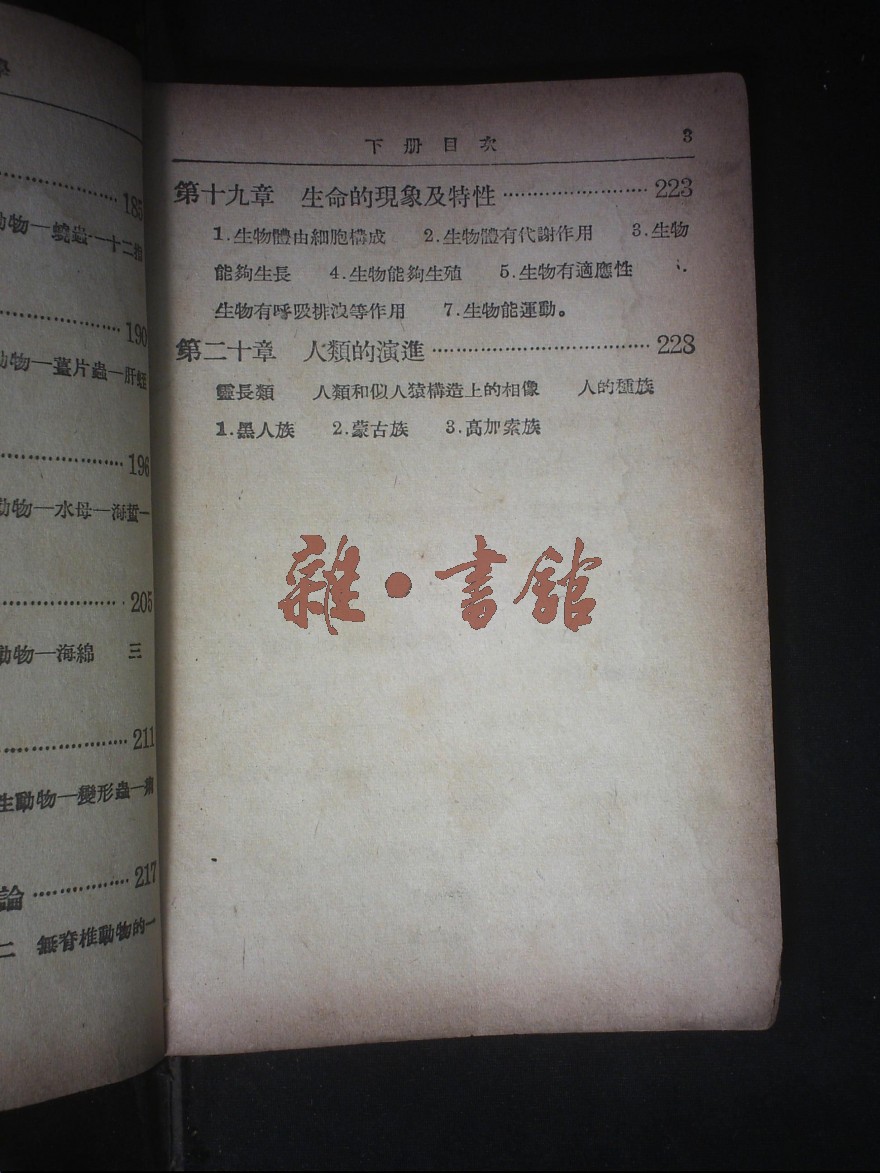 學
185
動物—蟯蟲—十二指
190
動物—薑片蟲—肝蛭
196
動物—水母—海蜇—
205
動物—海綿 三
211
生動物—變形蟲—瘧
論 217
二 無脊椎動物的一
下册目次 3
第十九章 生命的現象及特性 223
1.生物體由細胞構成 2.生物體有代謝作用 3.生物
能夠生長 4.生物能夠生殖 5.生物有適應性
生物有呼吸排洩等作用 7.生物能運動。
第二十章 人類的演進 228
靈長類 人類和似人猿構造上的相像 人的種族
1.黑人族 2.蒙古族 3.高加索族
雜·書館